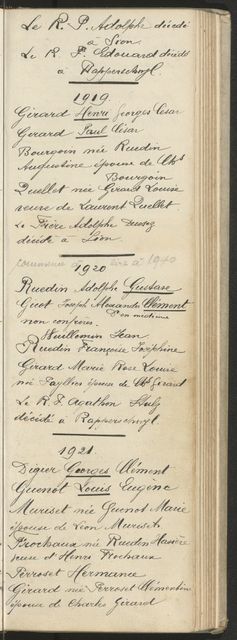 Le R. P. Adolphe décédé
à Sion
Le R. P. Edouard décédé
à Rapperschwyl.
1919.
Girard Henri Georges César
Gerard Paul César
Bourgoin née Ruedin
Augustine épouse de Chs
Bourgoin
Quellet née Girard Louise
veuve de Laurent Quellet
Le Frère Adolphe
décédé à Sion.
à 1940
1920
Ruedin Adolphe Gustave
Gicot Joseph Alexandre Clément
Dr en médecine
non confrère.
Wuillemin Jean
Ruedin Françoise Joséphine
Girard Marie Rose Louise
née épouse de Chs Girard
Le R. P. Agathon
décédé à Rapperschwyl.
1921.
Digier Georges Clément
Quenot Louis Eugène
Muriset née Quenot Marie
épouse de Léon Muriset
Frochaux née Ruedin
et Henri Frochaux
Perroset Hermance
Girard née Perroset Clémentine
épouse de Charles Girard